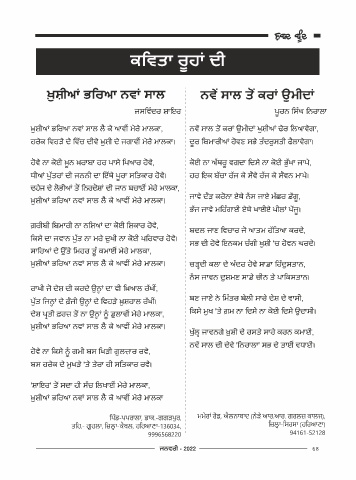 ਕਵਿਤਾ ਰੂਹਾਂ ਦੀ
ਖ਼ੁਸ਼ੀਆਂ ਭਰਿਆ ਨਵਾਂ ਸਾਲ
ਜਸਵਿੰਦਰ ਸ਼ਾਇਰ
ਖ਼ੁਸ਼ੀਆਂ ਭਰਿਆ ਨਵਾਂ ਸਾਲ ਲੈ ਕੇ ਆਵੀਂ ਮੇਰੇ ਮਾਲਕਾ,
ਹਰੇਕ ਵਿਹੜੇ ਦੇ ਵਿੱਚ ਦੀਵੇ ਖ਼ੁਸ਼ੀ ਦੇ ਜਗਾਵੀਂ ਮੇਰੇ ਮਾਲਕਾ।
ਹੋਵੇ ਨਾ ਕੋਈ ਖ਼ੂਨ ਖ਼ਰਾਬਾ ਹਰ ਪਾਸੇ ਪਿਆਰ ਹੋਵੇ,
ਧੀਆਂ ਪੁੱਤਰਾਂ ਦੀ ਜਨਨੀ ਦਾ ਇੱਥੇ ਪੂਰਾ ਸਤਿਕਾਰ ਹੋਵੇ।
ਦਹੇਜ ਦੇ ਲੋਭੀਆਂ ਤੋਂ ਨਿਰਦੋਸ਼ਾਂ ਦੀ ਜਾਨ ਬਚਾਈਂ ਮੇਰੇ ਮਾਲਕਾ,
ਖ਼ੁਸ਼ੀਆਂ ਭਰਿਆ ਨਵਾਂ ਸਾਲ ਲੈ ਕੇ ਆਵੀਂ ਮੇਰੇ ਮਾਲਕਾ।
ਗਰੀਬੀ ਬਿਮਾਰੀ ਨਾ ਨਸ਼ਿਆਂ ਦਾ ਕੋਈ ਸ਼ਿਕਾਰ ਹੋਵੇ,
ਕਿਸੇ ਦਾ ਜਵਾਨ ਪੁੱਤ ਨਾ ਮਰੇ ਦੁਖੀ ਨਾ ਕੋਈ ਪਰਿਵਾਰ ਹੋਵੇ।
ਸਾਰਿਆਂ ਦੇ ਉੱਤੇ ਮਿਹਰ ਤੂੰ ਕਮਾਈਂ ਮੇਰੇ ਮਾਲਕਾ,
ਖ਼ੁਸ਼ੀਆਂ ਭਰਿਆ ਨਵਾਂ ਸਾਲ ਲੈ ਕੇ ਆਵੀਂ ਮੇਰੇ ਮਾਲਕਾ।
ਰਾਖੀ ਜੋ ਦੇਸ਼ ਦੀ ਕਰਦੇ ਉਨ੍ਹਾਂ ਦਾ ਵੀ ਖ਼ਿਆਲ ਰੱਖੀਂ,
ਪੁੱਤ ਜਿਨ੍ਹਾਂ ਦੇ ਫ਼ੌਜੀ ਉਨ੍ਹਾਂ ਦੇ ਵਿਹੜੇ ਖ਼ੁਸ਼ਹਾਲ ਰੱਖੀਂ।
ਦੇਸ਼ ਪ੍ਰਤੀ ਫ਼ਰਜ਼ ਤੋਂ ਨਾ ਉਨ੍ਹਾਂ ਨੂੰ ਡੁਲਾਵੀਂ ਮੇਰੇ ਮਾਲਕਾ,
ਖ਼ੁਸ਼ੀਆਂ ਭਰਿਆ ਨਵਾਂ ਸਾਲ ਲੈ ਕੇ ਆਵੀਂ ਮੇਰੇ ਮਾਲਕਾ।
ਹੋਵੇ ਨਾ ਕਿਸੇ ਨੂੰ ਗਮੀ ਬਸ ਖਿੜੀ ਗੁਲਜ਼ਾਰ ਰਵੇ,
ਬਸ ਹਰੇਕ ਦੇ ਮੁਖੜੇ 'ਤੇ ਤੇਰਾ ਹੀ ਸਤਿਕਾਰ ਰਵੇ।
'ਸ਼ਾਇਰ' ਤੋਂ ਸਦਾ ਹੀ ਸੱਚ ਲਿਖਾਈਂ ਮੇਰੇ ਮਾਲਕਾ,
ਖ਼ੁਸ਼ੀਆਂ ਭਰਿਆ ਨਵਾਂ ਸਾਲ ਲੈ ਕੇ ਆਵੀਂ ਮੇਰੇ ਮਾਲਕਾ
ਪਿੰਡ-ਪਪਰਾਲਾ, ਡਾਕ.-ਗਗੜਪੁਰ,
ਤਹਿ.- ਗੂਹਲਾ, ਜ਼ਿਲ੍ਹਾ-ਕੈਥਲ, ਹਰਿਆਣਾ-136034,
9996568220
ਨਵੇਂ ਸਾਲ ਤੋਂ ਕਰਾਂ ਉਮੀਦਾਂ
ਪੂਰਨ ਸਿੰਘ ਨਿਰਾਲਾ
ਨਵੇਂ ਸਾਲ ਤੋਂ ਕਰਾਂ ਉਮੀਦਾਂ ਖ਼ੁਸ਼ੀਆਂ ਢੇਰ ਲਿਆਵੇਗਾ,
ਦੂਰ ਬਿਮਾਰੀਆਂ ਹੋਵਣ ਸਭੇ ਤੰਦਰੁਸਤੀ ਫੈਲਾਵੇਗਾ।
ਕੋਈ ਨਾ ਅੱਥਰੂ ਵਗਦਾ ਦਿਸੇ ਨਾ ਕੋਈ ਭੁੱਖਾ ਜਾਪੇ,
ਹਰ ਇਕ ਬੱਚਾ ਰੱਜ ਕੇ ਸੌਂਵੇ ਰੱਜ ਕੇ ਸੌਵਣ ਮਾਪੇ।
ਜਾਵੇ ਦੌੜ ਕਰੋਨਾ ਏਥੋਂ ਨੱਸ ਜਾਏ ਮੱਛਰ ਡੇਂਗੂ,
ਭੱਜ ਜਾਵੇ ਮਹਿੰਗਾਈ ਏਥੋਂ ਖਾਈਏ ਪੀਲਾਂ ਪੇਂਜੂ।
ਬਦਲ ਜਾਣ ਵਿਚਾਰ ਜੋ ਆਤਮ ਹੱਤਿਆ ਕਰਦੇ,
ਸਭ ਦੀ ਹੋਵੇ ਇਨਕਮ ਚੰਗੀ ਖੁਸ਼ੀ 'ਚ ਹੋਵਨ ਘਰਦੇ।
ਚੜ੍ਹਦੀ ਕਲਾ ਦੇ ਅੰਦਰ ਹੋਵੇ ਸਾਡਾ ਹਿੰਦੁਸਤਾਨ,
ਨੱਸ ਜਾਵਨ ਦੁਸ਼ਮਣ ਸਾਡੇ ਚੀਨ ਤੇ ਪਾਕਿਸਤਾਨ।
ਬਣ ਜਾਏ ਨੇ ਮਿੱਤਰ ਬੇਲੀ ਸਾਰੇ ਦੇਸ਼ ਦੇ ਵਾਸੀ,
ਕਿਸੇ ਮੁਖ 'ਤੇ ਗ਼ਮ ਨਾ ਦਿਸੇ ਨਾ ਕੋਈ ਦਿਸੇ ਉਦਾਸੀ।
ਖੁੱਲ੍ਹ ਜਾਵਨਗੇ ਖ਼ੁਸ਼ੀ ਦੇ ਰਸਤੇ ਸਾਰੇ ਕਰਨ ਕਮਾਈ,
ਨਵੇਂ ਸਾਲ ਦੀ ਦੇਵੇ 'ਨਿਰਾਲਾ' ਸਭ ਦੇ ਤਾਈਂ ਵਧਾਈ।
ਮਮੇਰਾਂ ਰੋਡ, ਐਲਨਾਬਾਦ (ਨੇੜੇ ਆਰ.ਆਰ. ਗਰਲਜ਼ ਕਾਲਜ),
ਜ਼ਿਲ੍ਹਾ-ਸਿਰਸਾ (ਹਰਿਆਣਾ)
94161-52128
ਜਨਵਰੀ - 2022
68